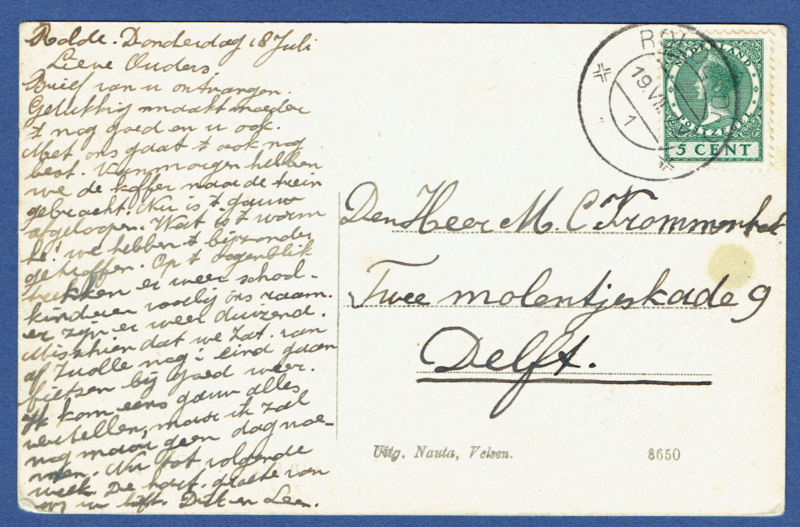 Rolde. Donderdag 18 Juli
Lieve Ouders,
Brief van u ontvangen.
Gelukkig maakt moeder
't nog goed en u ook.
Met ons gaat 't ook nog
best. Vanmorgen hebben
we de koffer naar de trein
gebracht. Nu is 't gauw
afgeloopen. Wat is 't warm
hè! we hebben 't bijzonder
getroffen. Op 't oogenblik
trekken er weer school-
kinderen voorbij ons raam.
er zijn er weer duizend.
Misschien dat we Zat. van
af Zwolle nog 'n eind gaan
fietsen bij goed weer.
Ik kom eens gauw alles
vertellen, maar ik zal
nog maar geen dag noe-
men. Nu tot volgende
week. De hart. groeten van
en Lien.
ROLDE
19.VII
1
NEDERLAND
POSTZEGEL
5 CENT
Den Heer M. C. Krommenhoek
Twee molentjeskade 9
Delft.
Uitg. Nauta, Velsen.
8650